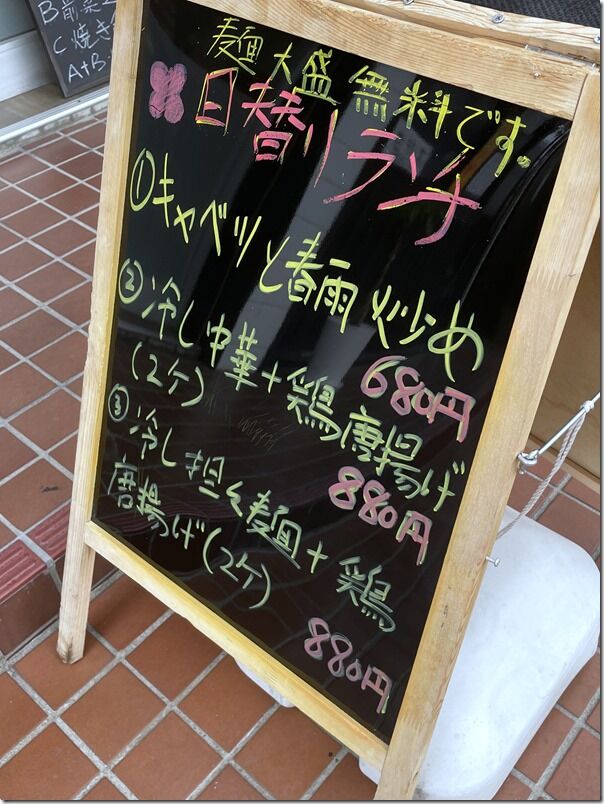 B前菜
C焼き
A+B
麺大盛無料です。
日替りランチ
①キャベツと春雨炒め
680円
②冷し中華+鶏唐揚げ
(2ケ)
880円
③冷し担々麺+鶏
唐揚げ(2ケ)
880円